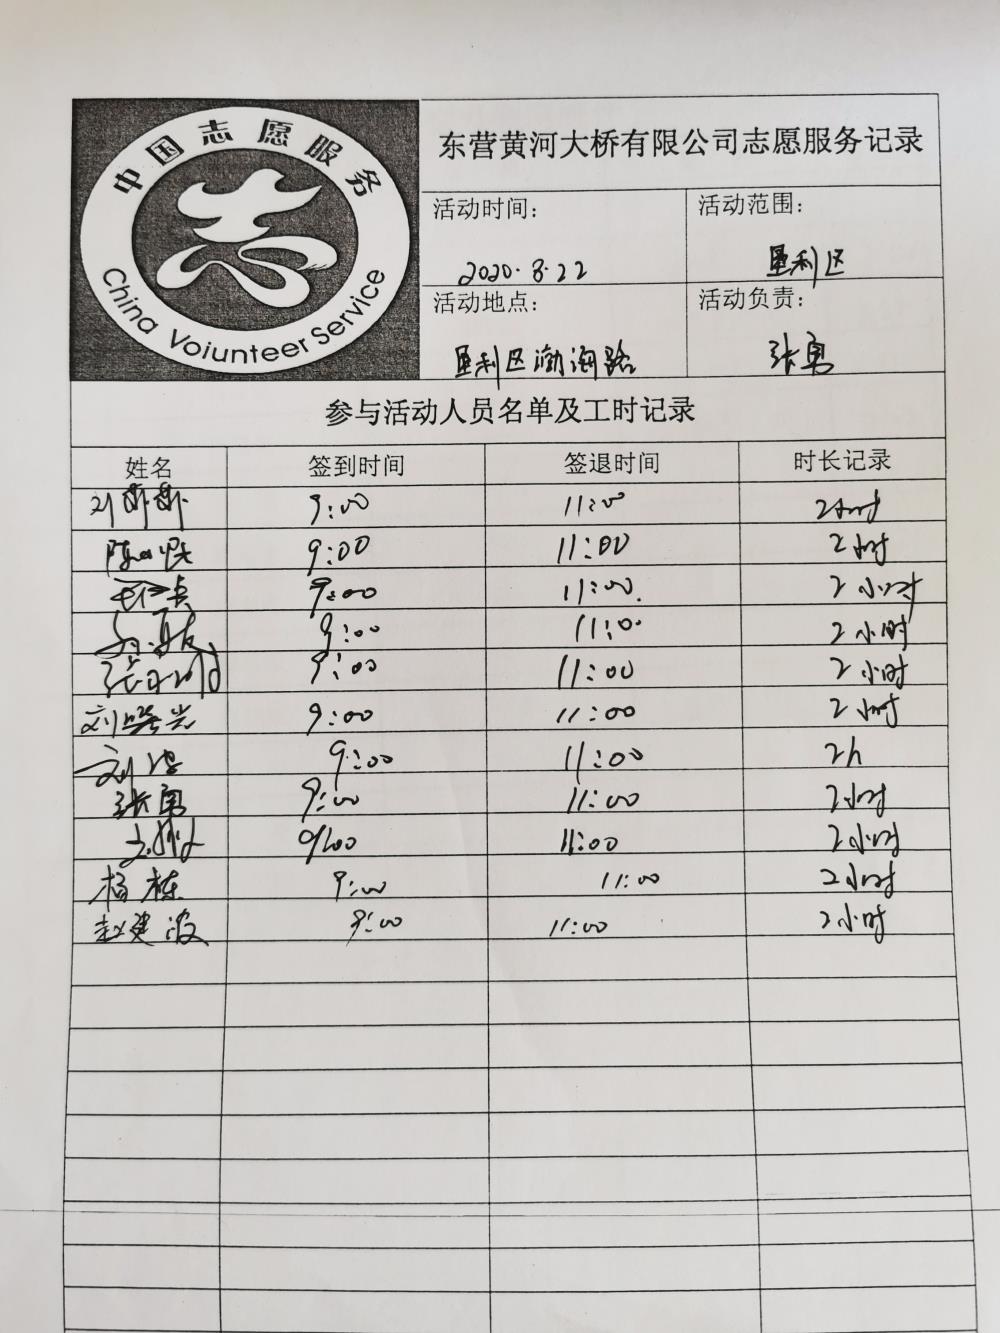 中国志愿服务
China Voiunteer Service
东营黄河大桥有限公司志愿服务记录
活动时间： 活动范围：
2020.8.22 垦利区
活动地点： 活动负责：
垦利区渤海路 张勇
参与活动人员名单及工时记录
姓名 签到时间 签退时间 时长记录
9:00 11:00 2小时
9:00 11:00 2小时
9:00 11:00 2小时
9:00 11:00 2小时
9:00 11:00 2小时
9:00 11:00 2小时
刘 9:00 11:00 2h
张勇 9:00 11:00 2小时
9:00 11:00 2小时
杨栋 9:00 11:00 2小时
赵建波 9:00 11:00 2小时